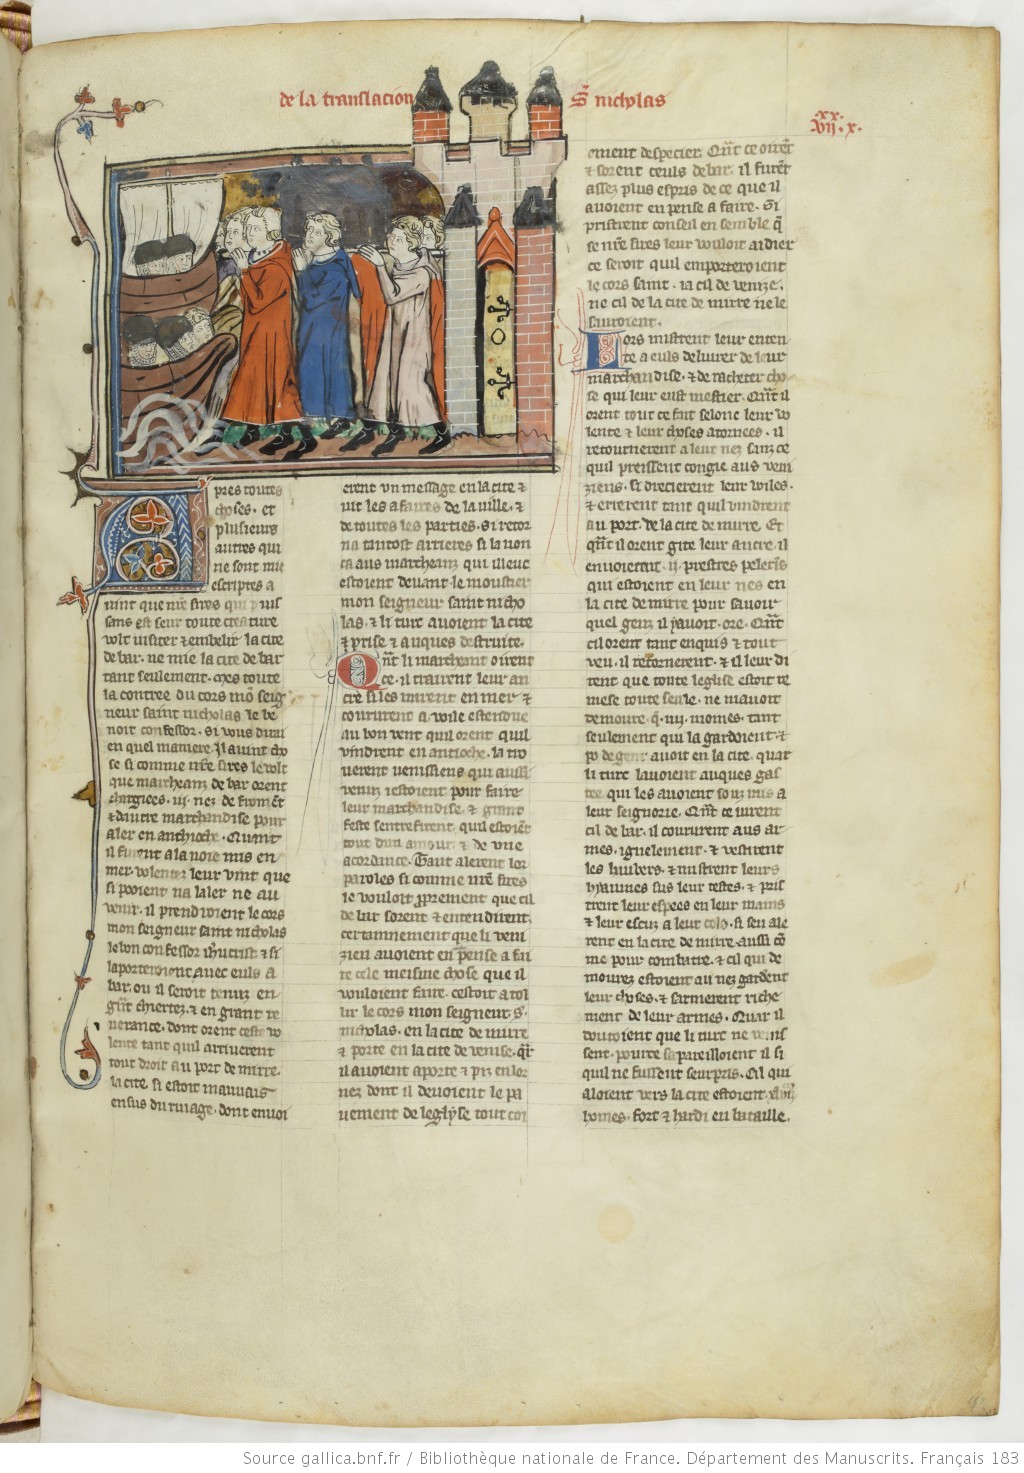 de la translacion
S nicholas
.xx.
vii.x.
pres toutes
choses. et
plusieurs
autres qui
ne sont mie
escriptes a
uint que nre sires qui puis
sans est seur toute creature
volt visiter & embelir la cite
de bar. ne mie la cite de bar
tant seulement. mes toute
la contree du cors mo seig
neur saint nicholas le be
noit confessor. si vous dirai
en quel maniere. Il auint cho
se si comme nre sires le volt
que marcheanz de bar orent
chargiees. iii. nez de froment
& dautre marchandise pour
aler en anthioche. Quant
il furent a la uoie mis en
mer. volentez leur vint que
si pooient na laler ne au
uenir. il prendroient le cors
mon seigneur saint nicholas
le bon confessor ihucrist & si
laporteroient auec euls a
bar. ou il seroit tenuz en
gnt chiertez. & en grant re
uerance. dont orent ceste vo
lente tant quil arriuerent
tout droit au port de mirre.
la cite si estoit
en sus du riuage. dont enuoi
erent vn message en la cite &
uit les afaires de la uille. &
de toutes les parties. si retor
na tantost arrieres si la uon
ca aus marcheanz qui illeuc
estoient deuant le moustier
mon seigneur saint nicho
las. & li turc auoient la cite
& prise & auques destruite.
Qnt li marcheant oirent
ce. il trairent leur an
cre si les mirent en mer &
coururent a voile estendue
au bon vent quil orent quil
vindrent en antioche. la tro
uerent venissiens qui aussi
venuz i estoient pour faire
leur marchandise. & grant
feste sentrefirent. quil estoient
tout dun amour. & de vne
acordance. Tant alerent lor
paroles si comme nre sires
le vouloit proprement que cil
de bar sorent & entendirent
certainnement que li veni
zien auoient en pense a fai
re cele meisme chose que il
vouloient faire. cestoit a tol
lir le cors mon seigneur. s.
nicholas. en la cite de mirre
& porte en la cite de venise. qr
il auoient aporte & pis en lor
nez dont il deuoient le pa
uement de leglyse tout coi
ement despecier. Qnt ce oirent
& sorent ceuls de bar. il furent
assez plus espris de ce que il
auoient en pense a faire. Si
pristrent conseil en semble q
se nre sires leur vouloit aidier
ce seroit quil emporteroient
le cors saint. ia cil de venize.
ne cil de la cite de mirre ne le
sauroient.
Lors mistrent leur enten
te a euls deliurer de leur
marchandise. & de racheter cho
se qui leur eust mestier. Qnt il
orent tout ce fait selonc leur vo
lente & leur choses atornees. il
retournerent a leur nez sanz ce
quil preissent congie aus veni
ziens. si drecierent leur voiles.
& errerent tant quil vindrent
au port. de la cite de mirre. Et
qnt il orent gite leur ancre. il
enuoierent. ii. prestres pelerins
qui estoient en leur nes en
la cite de mirre pour sauoir
quel genz il y auoit. ore. Qnt
cil orent tant enquis & tout
veu. il retornerent. & il leur di
rent que toute leglise estoit re
mese toute seule. ne nauoit
demoure. q. iiij. moines. tant
seulement qui la gardoient. &
po de gent auoit en la cite. quar
li turc lauoient auques gas
tee. qui les auoient souz mis a
leur seignorie. Qnt ce oirent
cil de bar. il coururent aus ar
mes. ignelement. & vestirent
les haubers. & mistrent leurs
hyaumes sus leur testes. & pris
trent leur espees en leur mains
& leur escuz a leur cols. si sen ale
rent en la cite de mirre. aussi co
me pour combatre. & cil qui de
mourez estoient au nez gardent
leur choses. & sarmerent riche
ment de leur armes. Quar il
doutoient que li turc ne venis
sent. pour ce sapareilloient il si
quil ne fussent seurpris. Cil qui
aloient vers la cite estoient
homes. fort & hardi en bataille.
Source gallica.bnf.fr / Bibliothèque nationale de France. Département des Manuscrits. Français 183